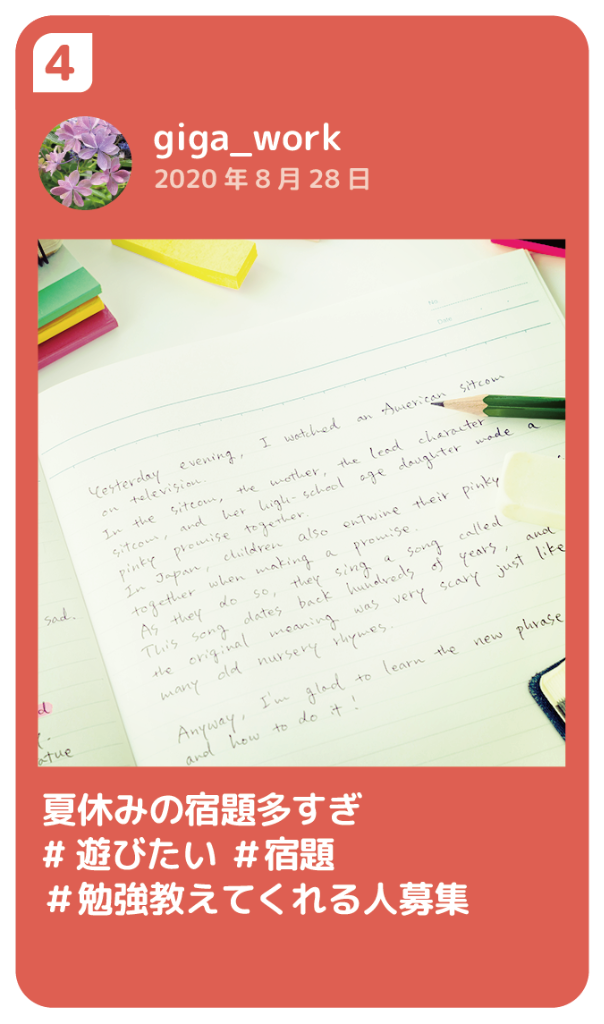 4
giga_work
2020年8月28日
No.
Date
Yesterday evening, I watched an American sitcom
on television.
In the sitcom, the mother, the lead character
sitcom, and her high-school age daughter made a
pinky promise together.
In Japan, children also entwine their pinky
together when making a promise.
As they do so, they sing a song called
This song dates back hundreds of years, and
the original meaning was very scary just like
many old nursery rhymes.
Anyway, I'm glad to learn the new phrase
and how to do it!
sad.
atue
夏休みの宿題多すぎ
# 遊びたい #宿題
#勉強教えてくれる人募集